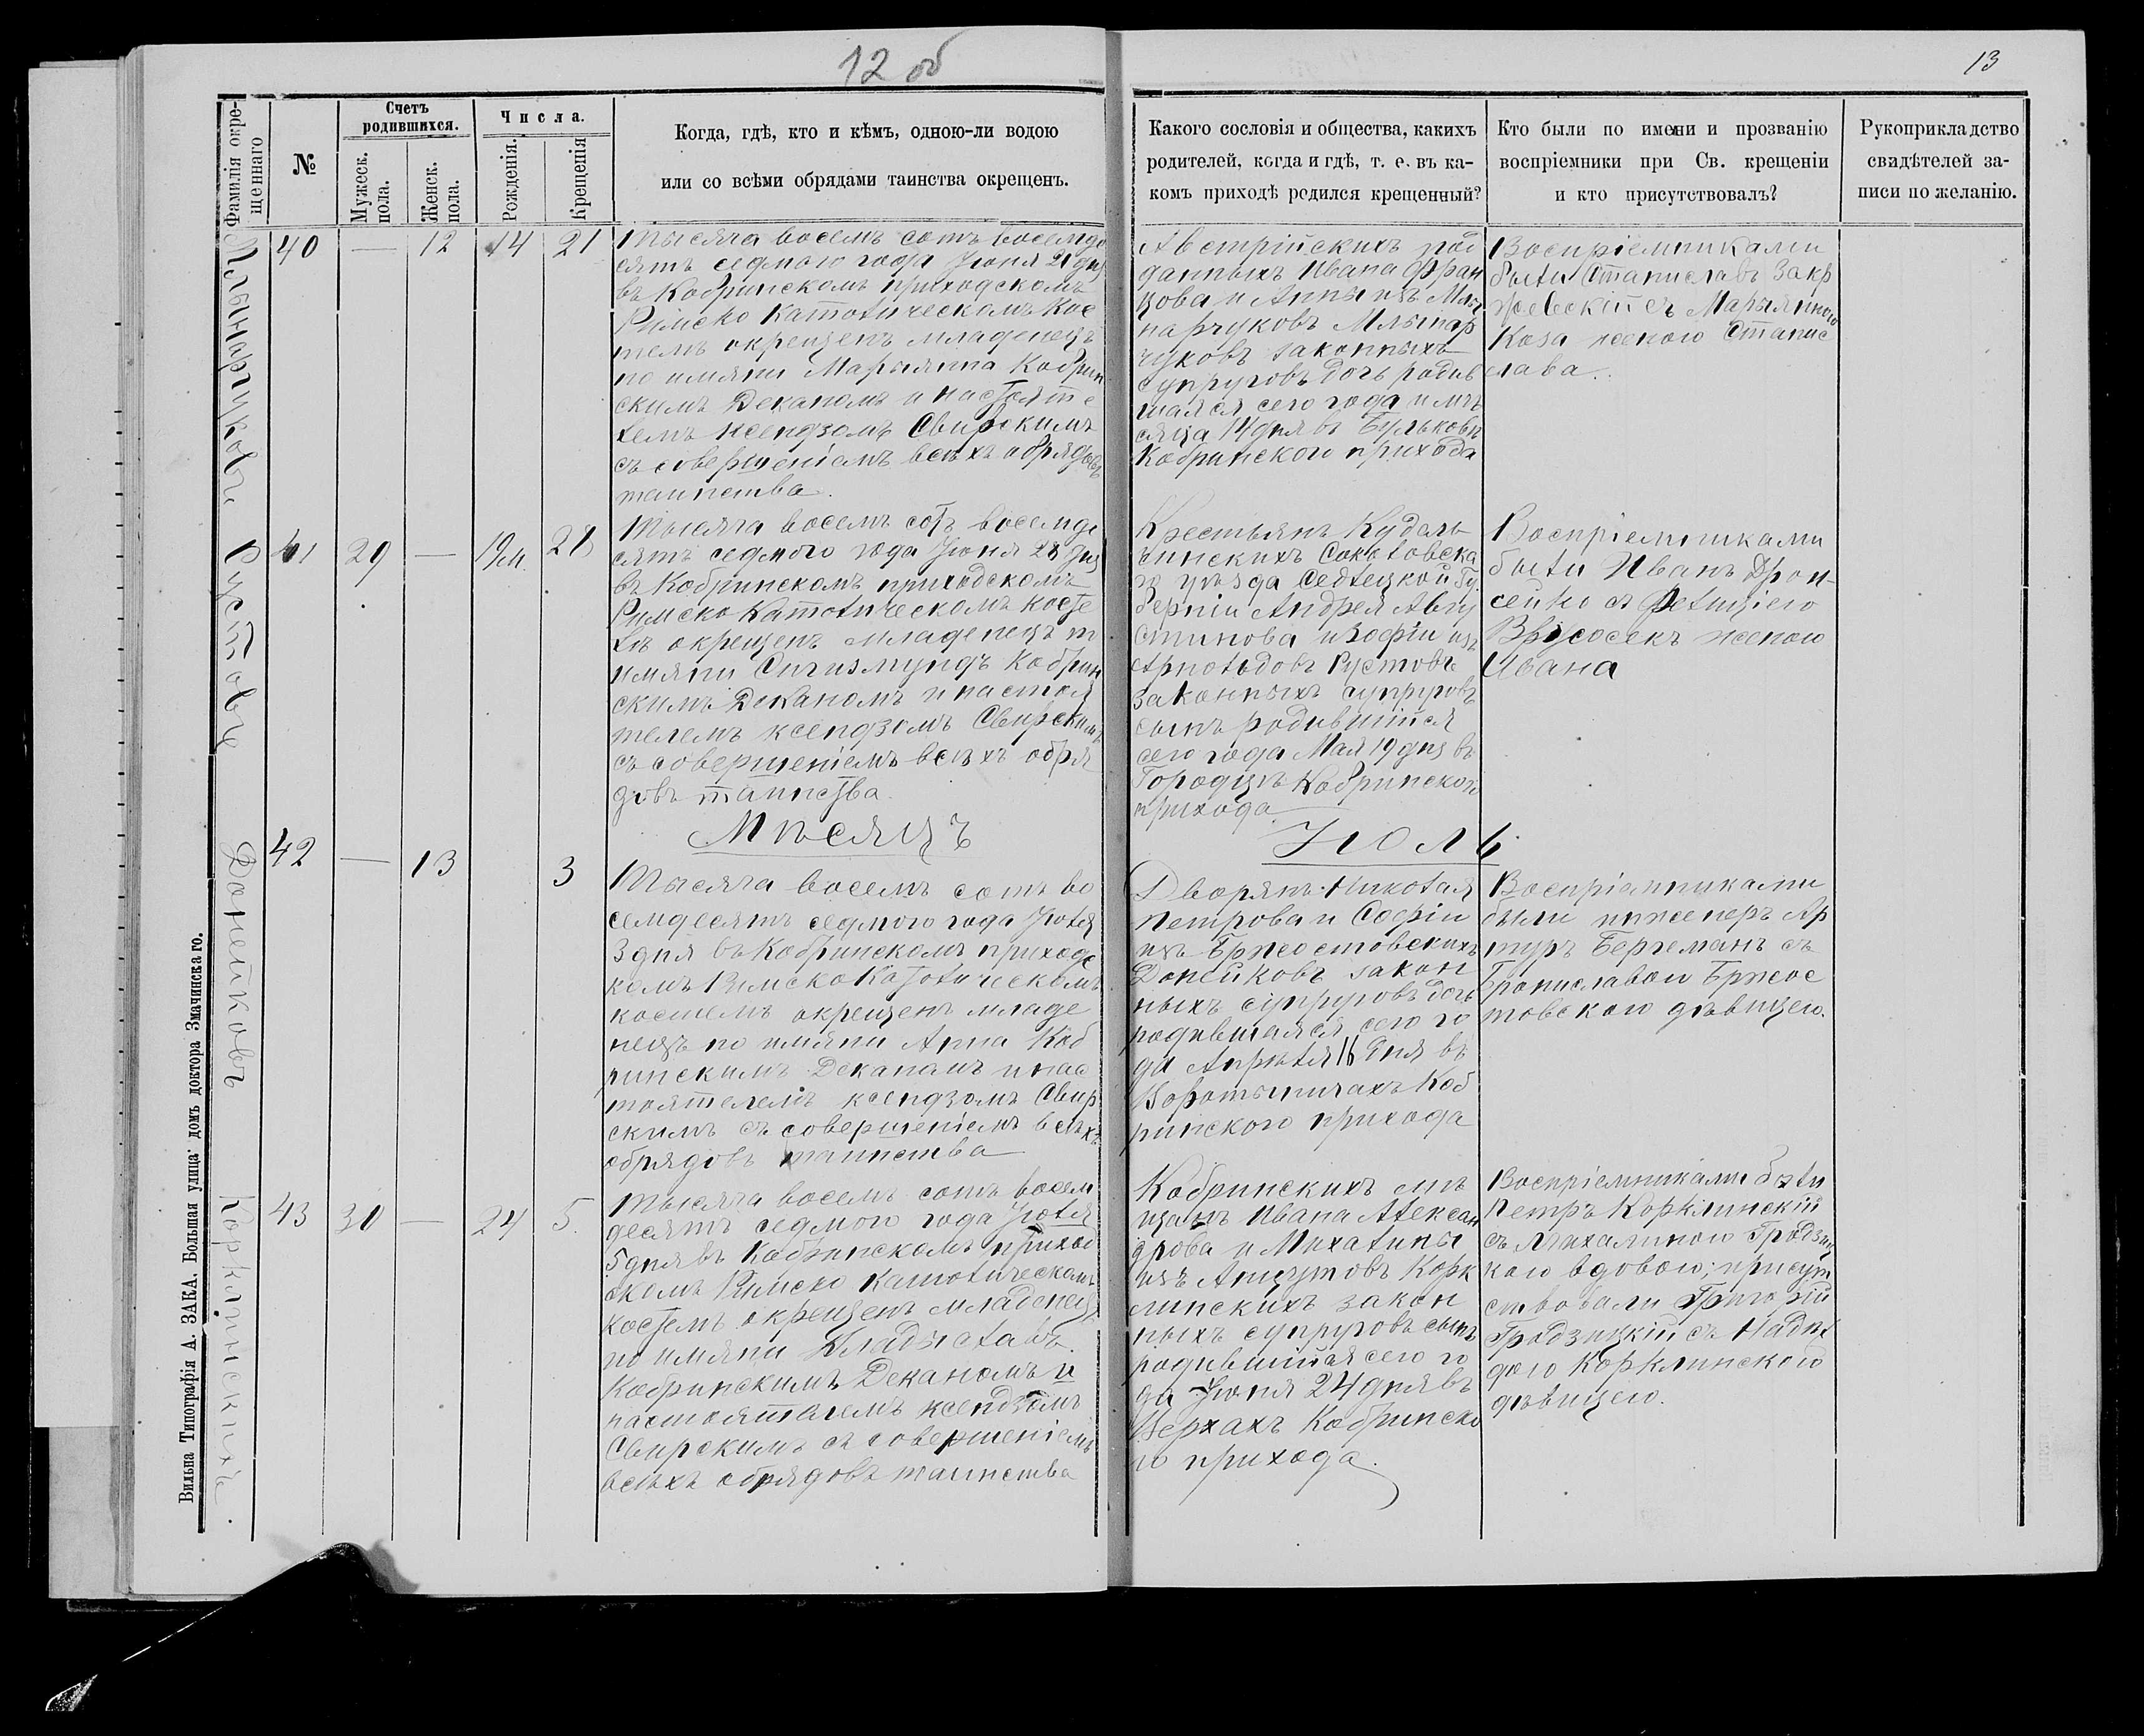 12 об
13
Фамилія окре-
щеннаго
№
Счетъ
родившихся.
Мужеск.
пола.
Женск.
пола.
Числа.
Рожденія.
Крещенія
Когда, гдѣ, кто и кѣмъ, одною-ли водою
или со всѣми обрядами таинства окрещенъ.
Какого сословія и общества, какихъ
родителей, когда и гдѣ, т. е. въ ка-
комъ приходѣ родился крещенный?
Кто были по имени и прозванію
воспріемники при Св. крещеніи
и кто присутствовалъ?
Рукоприкладство
свидѣтелей за-
писи по желанію.
Млынарчуковъ
40 — 12 14 21
Тысяча восемъ сотъ восемде
сятъ седмого года Іюня 21 дня
въ Кобринскомъ приходскомъ
Римско Католическомъ Кос
телѣ окрещенъ младенецъ
по имяни Марыянна Кобрин
скимъ Деканомъ и настояте
лемъ ксендзомъ Свирскимъ
съ совершеніемъ всѣхъ обрядовъ
таинства.
Австрійскихъ под
данныхъ Ивана Фран
цова и Анны изъ Млы
нарчуковъ Млынар
чуковъ законныхъ
супруговъ дочь родив
шаяся сего года и мѣ
сяца 14 дня въ Бульковѣ
Кобринского прихода
Воспріемниками
были Станиславъ Закр
жевскій съ Марыянною
Коза женою Станис
лава.
Рустовъ
41 29 — 19 м. 28
Тысяча восемъ сотъ восемде
сятъ седмого года Іюня 28 дня
въ Кобринскомъ приходскомъ
Римско Католическомъ косте
лѣ окрещенъ младенецъ по
имяни Сигизмундъ Кобрин
скимъ Деканомъ и настоя
телемъ ксендзомъ Свирскимъ
съ совершеніемъ всѣхъ обря
довъ таинства.
Крестьянъ Кудель
чинскихъ Соколовска
го уѣзда Седлецкой Гу
берніи Андрея Авгу
стинова и Зофіи изъ
Арнольдовъ Рустовъ
законныхъ супруговъ
сынъ родившійся
сего года Мая 19 дня въ
Городцѣ Кобринского
прихода
Воспріемниками
были Иванъ Дрон-
сейко съ Фелиціею
женою
Ивана
Мѣсяцъ Іюль
Донейковъ
42 — 13 3
Тысяча восемъ сотъ во
семдесятъ седмого года Іюля
3 дня въ Кобринскомъ приходс
комъ Римско Католическомъ
костелѣ окрещенъ младе
нецъ по имяни Анна Коб
ринскимъ Деканомъ и нас
тоятелемъ ксендзомъ Свир
скимъ съ совершеніемъ всѣхъ
обрядовъ таинства
Дворянъ Николая
Петрова и Софіи
изъ Бржостовскихъ
Донейковъ закон
ныхъ супруговъ дочь
родившаяся сего го
да Апрѣля 16 дня въ
Воротыничахъ Коб
ринского прихода
Воспріемниками
были инженеръ Ар
туръ Бергеманъ съ
Брониславою Бржос
товскою дѣвицею.
Корклинскихъ.
43 30 — 24 5.
Тысяча восемъ сотъ восем
десятъ седмого года Іюля
5 дня въ Кобринскомъ приход
скомъ Римско Католическомъ
костелѣ окрещенъ младенецъ
по имяни Владиславъ
Кобринскимъ Деканомъ и
настоятелемъ ксендзомъ
Свирскимъ съ совершеніемъ
всѣхъ обрядовъ таинства
Кобринскихъ мѣ
щанъ Ивана Алексан
дрова и Михалины
изъ Анцутовъ Корк
линскихъ закон
ныхъ супруговъ сынъ
родившійся сего го
да Іюня 24 дня въ
Верхахъ Кобринско
го прихода.
Воспріемниками были
Петръ Корклинскій
съ Михалиною Гродзиц
кою вдовою; присут
ствовали Григорій
Гродзицкій съ Надеж
дою Корклинскою
дѣвицею.
Вильна Типографія А. ЗАКА. Большая улица домъ доктора Змачинскаго.